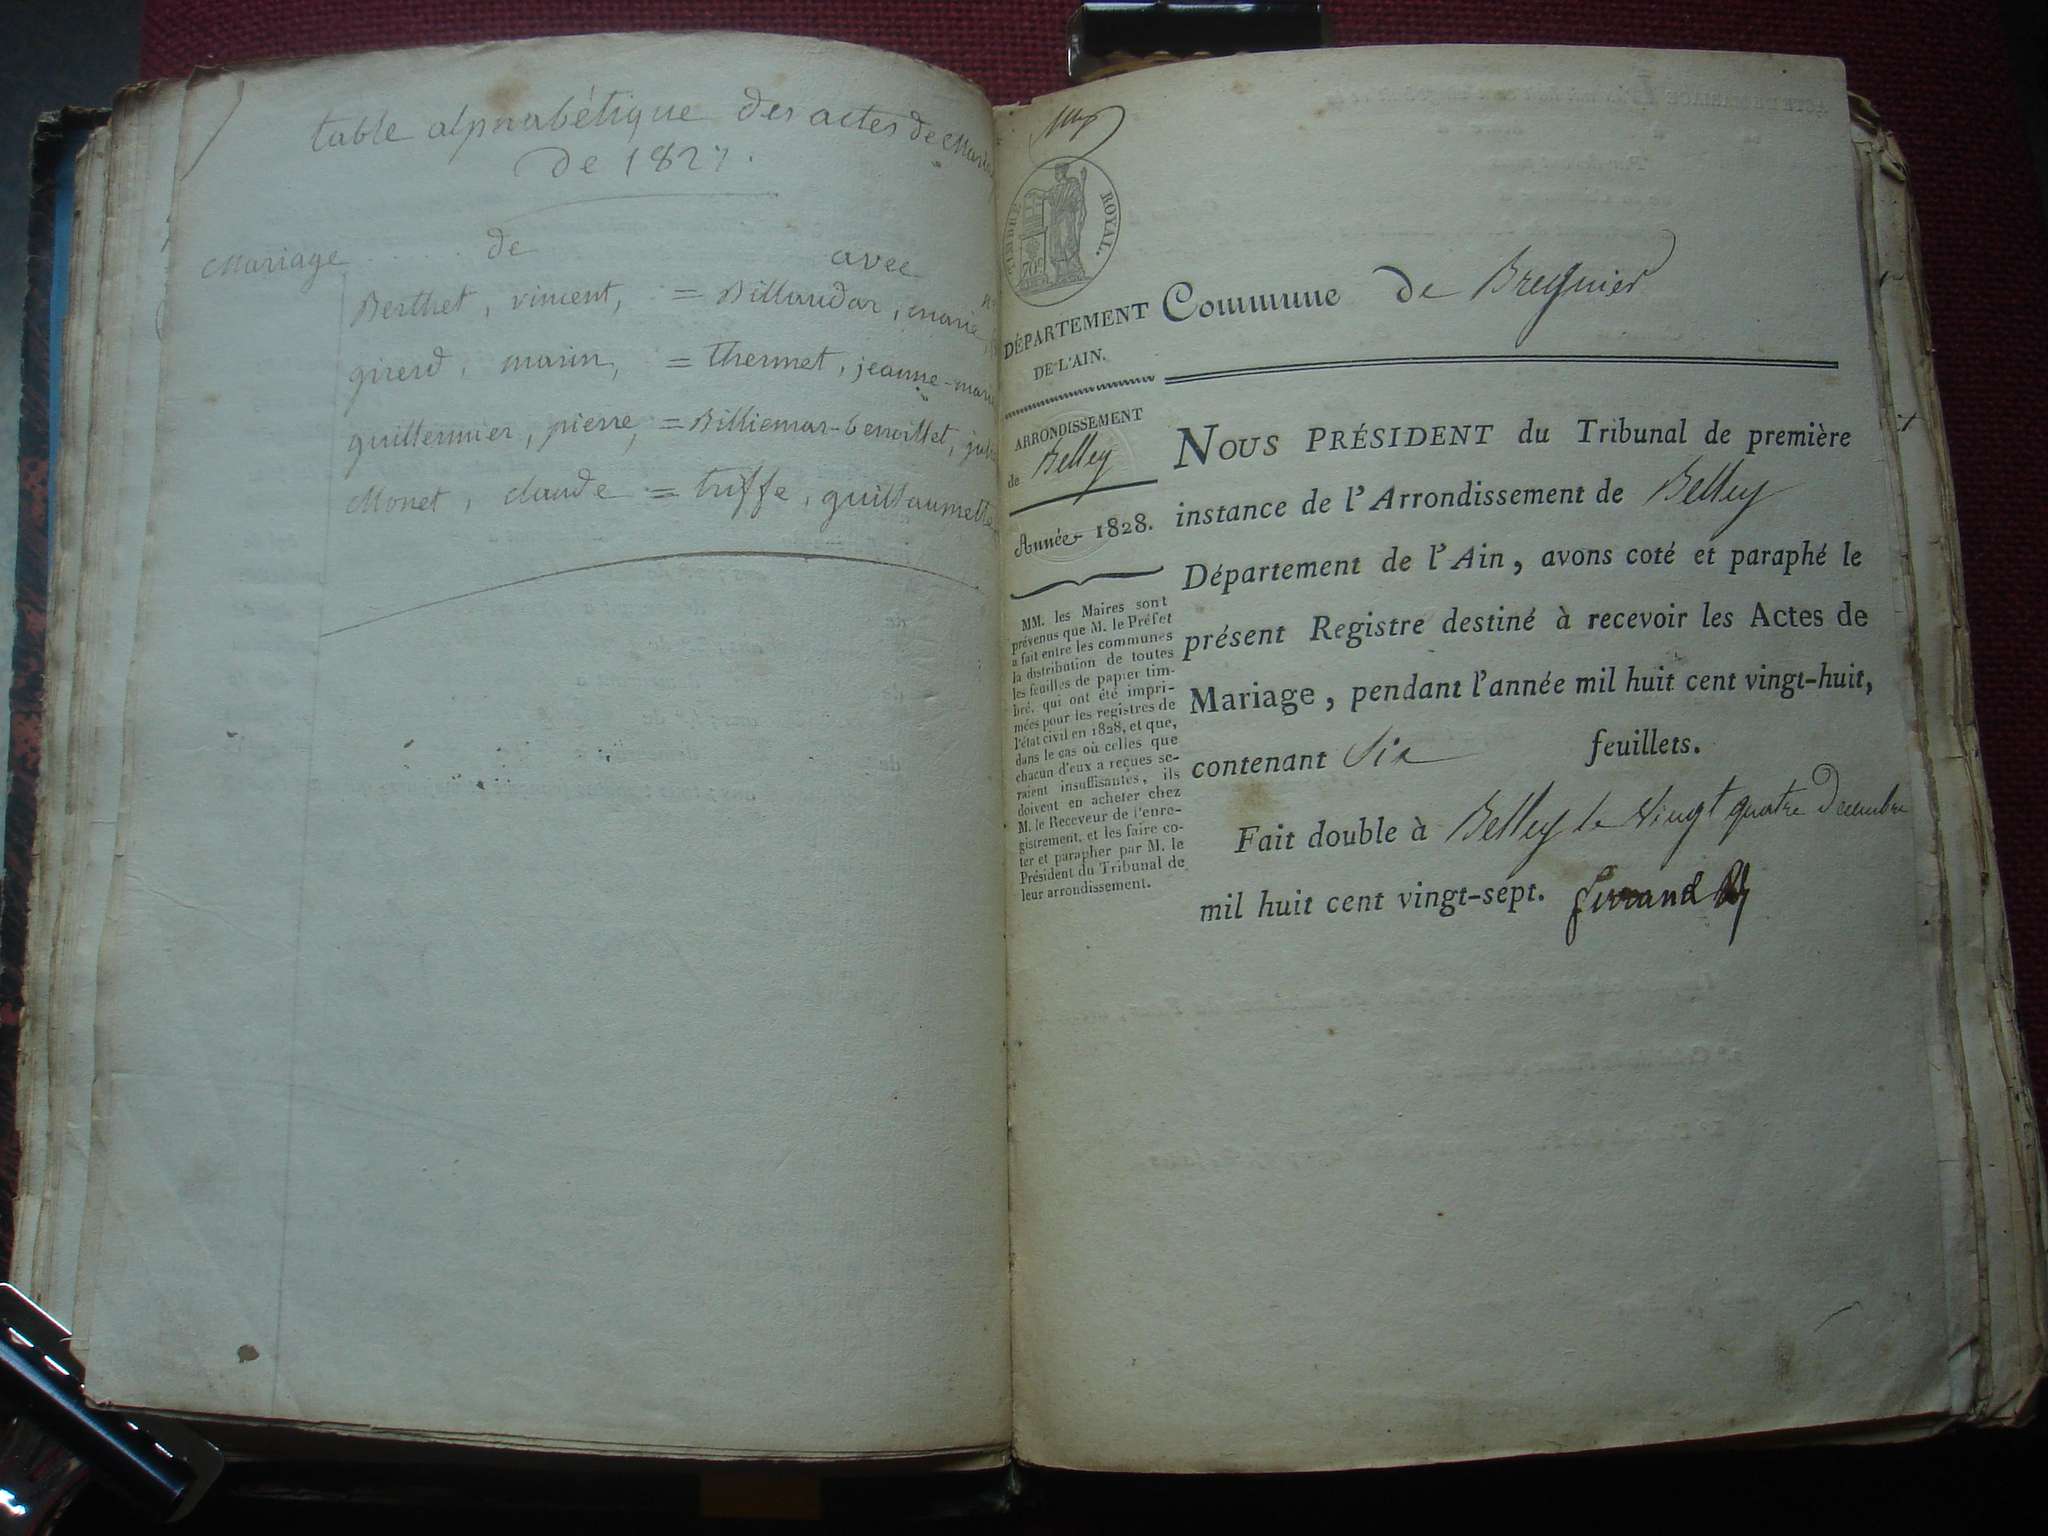 table alphabétique des actes de Maria
de 1827.
Mariage ..... de avec
Berthet, vincent, = Billaudaz, marie
girerd, marin, = thermet, jeanne-marie
guillermier, pierre, = Billiemaz-benoillet,
Monet, claude = truffe, guillaumette
TIMBRE ROYAL.
DÉPARTEMENT
DE L'AIN.
ARRONDISSEMENT
de Belley
Année 1828.
MM. les Maires sont
prévenus que M. le Préfet
a fait entre les communes
la distribution de toutes
les feuilles de papier tim-
bré, qui ont été impri-
mées pour les registres de
l'état civil en 1828, et que,
dans le cas où celles que
chacun d'eux a reçues se-
raient insuffisantes, ils
doivent en acheter chez
M. le Receveur de l'enre-
gistrement, et les faire co-
ter et parapher par M. le
Président du Tribunal de
leur arrondissement.
Commune de Bregnier
NOUS PRÉSIDENT du Tribunal de première
instance de l'Arrondissement de Belley
Département de l'Ain, avons coté et paraphé le
présent Registre destiné à recevoir les Actes de
Mariage, pendant l'année mil huit cent vingt-huit,
contenant Six feuillets.
Fait double à Belley le Vingt quatre Decembre
mil huit cent vingt-sept.